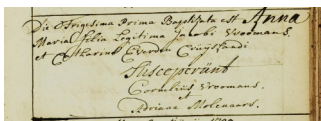 Die Trigesima Prima Baptizata est Anna
Maria filia Legitima Jacobi Vroomans,
et Catharinæ Everden Cruijslandi
Susceperunt
Cornelius Vroomans,
Adriana Molenaars.